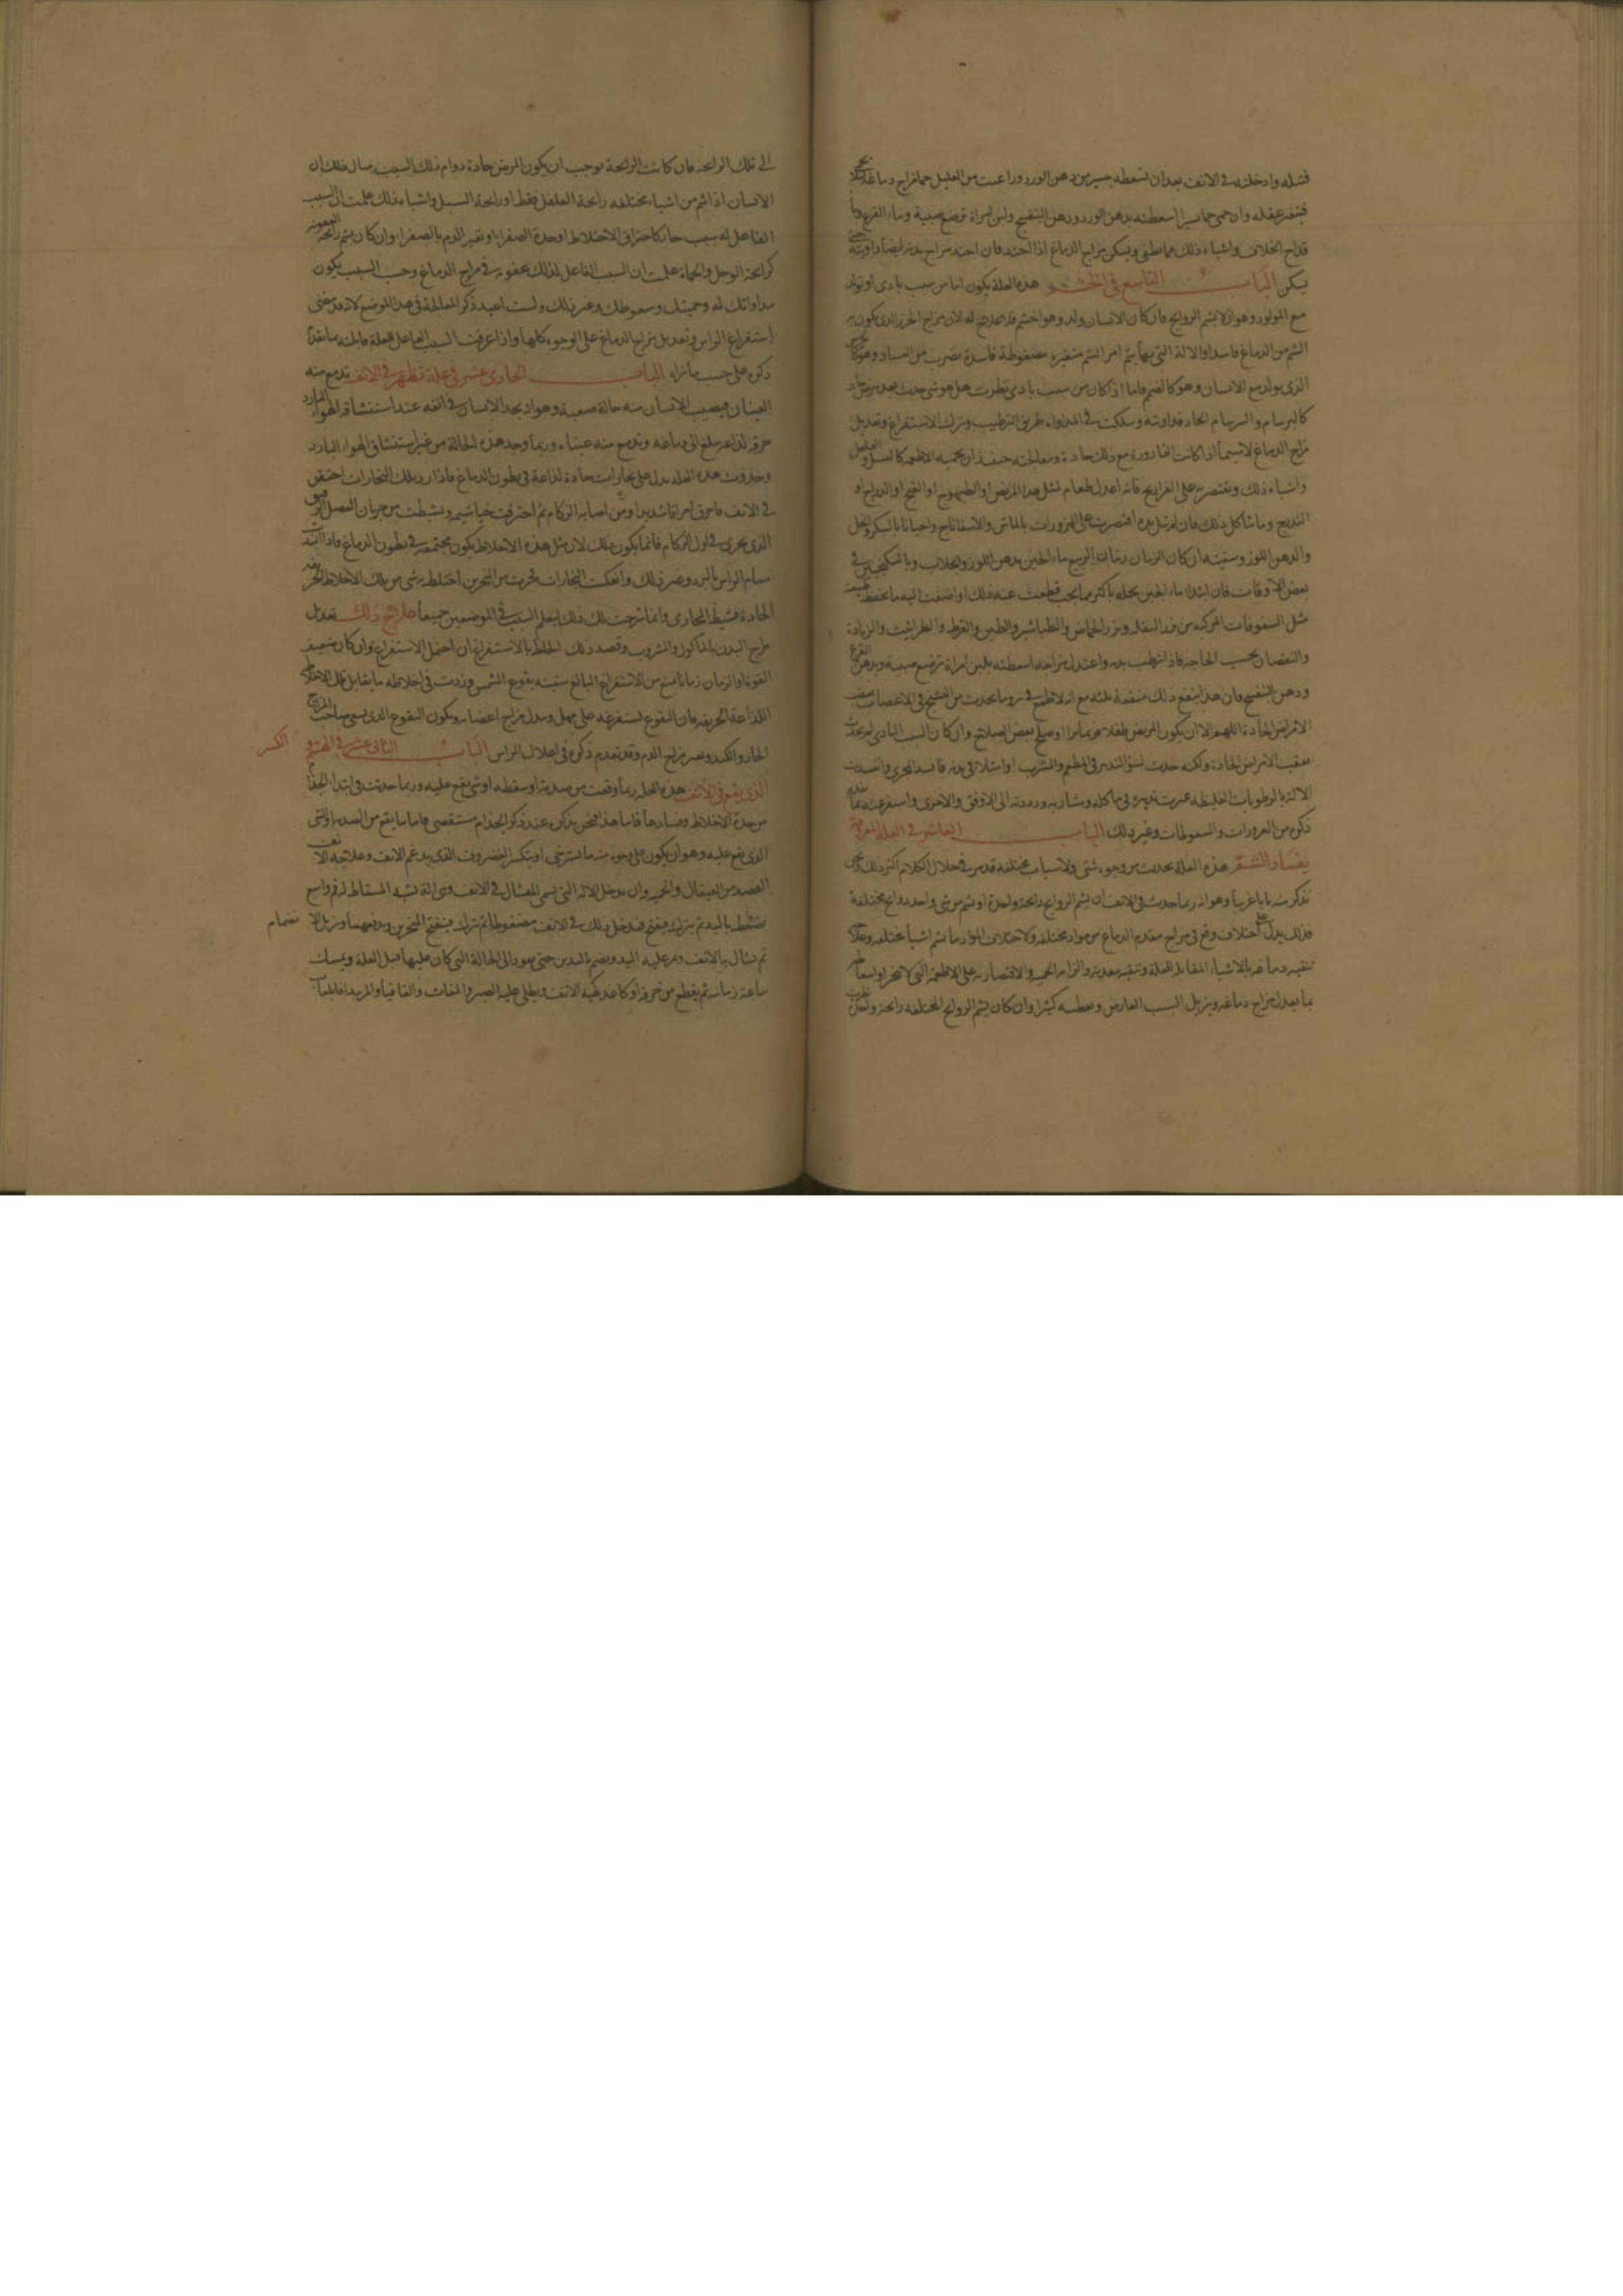 فتيله وادخلته في الانف بعد ان تسعطه بيسير من دهن الورد وراعيت من العليل حما مزاج دماغه لئلا يحمى
فيتغير عقله وان حمى حما يسيرا اسعطته بدهن الورد ودهن البنفسج ولبن امراة ترضع صبية وماء القرع وما
قداح الخلاف واشباه ذلك مما يطفى ويسكن مزاج الدماغ اذا احتد فان احتد مزاج بدنه ايضا داويته حتى
يسكن الباب التاسع في الخشم هذه العلة يكون اما من سبب بادى او تولد
مع المولود وهو ان لا يشم الروايح فان كان الانسان ولد وهو اخشم فلا علاج له لان مزاج الجزو الذى يكون به
الشم من الدماغ فاسد او الالة التى بها يتم امر الشم متغيره مضغوطة فاسدة بضرب من الفساد وهو كالخرس
الذى يولد مع الانسان وهو كالصم فاما اذا كان من سبب بادى نظرت هل هو شى حدث بعد مرض حاد
كالبرسام والسرسام الحاد فداويته وسلكت في المداواه طريق الترطيب وترك الاستفراغ وتعديل
مزاج الدماغ لا سيما اذا كانت القارورة مع ذلك حادة ومعالجته حينئذ ان تحميه الاطعمه كالعسل والفلفل
واشباه ذلك ويقتصر به على الفراريج فانه اعدل طعام لمثل هذا المريض او الطيهوج او القبج او الدراج او
التدرج وما شاكل ذلك فان لم تنل يده اقتصرت على المزورات بالماش والاسفاناج واحيانا بالسكر والخل
والدهن اللوز وسقيته ان كان الزمان زمان الربيع ماء الجبن بدهن اللوز والجلاب وبالسكنجبين في
بعض الاوقات فان ابتدا ماء الجبن يحله باكثر مما يجب قطعت عنه ذلك او اضفت اليه ما يحفظ طبيعته
مثل السفوفات المركبه من بزر البقله وبزر الحماض والطباشير والطين والقرط والطراثيث والزيادة
والنقصان بحسب الحاجه فاذا ترطب بدنه واعتدل مزاجه اسعطته بلبن امراة ترضع صبية وبدهن القرع
ودهن البنفسج فان هذا ينفع ذلك منفعة بينه مع انه لا طمع في برو ما يحدث من التشنج في الاعصاب بعقب
الامراض الحادة اللهم الا ان يكون المريض طفلا فربما برا او صلح بعض الصلاح وان كان السبب البادى لم يحدث
بعقب الامراض الحادة ولكنه حدث لسوء التدبير في المطعم والمشرب او امتلا في بدنه فانسد المجرى وانسدت
الالة بالرطوبات الغليظه غيرت تدبيره في ماكله ومشاربه ورددته الى الاوفق والاحرى واستفرغته بما تقدم
ذكره من الغرورات والسعوطات وغير ذلك الباب العاشر في العلة المعروفه
بفساد الشم هذه العلة تحدث من وجوه شتى ولاسباب مختلفه قد مر في خلال الكلام اكثر ذلك ونحن
نذكر منه بابا غريبا وهو انه ربما حدث في الانف ان يشم الروايح رايحة واحدة او يشم من شى واحد روايح مختلفة
فذلك يدل على اختلاف وقع في مزاج مقدم الدماغ من مواد مختلفه ولاختلاف المواد ما يشم اشيا مختلفه وعلاجه
تنقيه دماغه بالاشياء المقابله للعلة وتنقيه معدته والزامه الحميه والاقتصار به على الاطعمه التى لا تبخر واسعاطه
بما يعدل مزاج دماغه ويزيل السبب العارض وتعطسه كثيرا وان كان يشم الروايح المختلفه رايحة واحدة نظرت
الى تلك الرايحه فان كانت الرايحة توجب ان يكون المرض حادة دوام ذلك السبب مثال ذلك ان
الانسان اذا شم من اشياء مختلفه رايحة الفلفل فقط او رايحة السبل واشباه ذلك علمت ان السبب
الفاعل له سبب حار كاحتراق الاختلاط او حدة الصفراء او تغير الدم بالصفراء وان كان يشم رايحة العفونه
كرايحة الوحل والحماة علمت ان السبب الفاعل لذلك عفونه في مزاج الدماغ وحسب السبب يكون
مداواتك له وحميتك وسعوطك وغير ذلك ولست اعيد ذكر المعالجة في هذا الموضع لانه قد مضى
استفراغ الراس وتعديل مزاج الدماغ على الوجوه كلها واذا عرفت السبب الفاعل للعلة قابلته بما تقدم
ذكره على حسب ما تراه الباب الحادى عشر في علة تظهر في الانف تدمع منه
العينان فيصيب الانسان منه حالة صعبة وهو ان يجد الانسان في انفه عند استنشاقه الهواء البارد
حرقة لذاعه يبلغ الى دماغه وتدمع منه عيناه وربما وجد هذه الحالة من غير استنشاق الهواء البارد
وحدوث هذه العله يدل على بخارات حادة لذاعة في بطون الدماغ فاذا ردت تلك البخارات احتقن
في الانف فاحرق احراقا شديدا ومن اصابه الزكام ثم احترقت خياشيمه ونشطت من جريان الفضل الرقيق
الذى يجرى في اول الزكام فانما يكون ذلك لان مثل هذه الاخلاط يكون مجتمعه في بطون الدماغ فاذا انسدت
مسام الراس بالبرد وغير ذلك وانعكست البخارات فجرت من المنخرين اختلط به شى من تلك الاخلاط الحريفه
الحادة فتشيط المجارى وانما شرحت لك ذلك ليعلم السبب في الموضعين جميعا علاج ذلك تعديل
مزاج البدن بالماكول والمشروب وقصد ذلك الخلط بالاستفراغ ان احتمل الاستفراغ وان كان ضعيف
القوة او الزمان زمانا يمنع من الاستفراغ البالغ سقيته نقوع المشمش وزدت في اخلاطه ما يقابل تلك الاخلاط
اللذاعة الحريفه فان النقوع يستفرغه على مهل ويبدل مزاج اعضايه ويكون النقوع الذى يسقى صاحب المزاج
الحار والكبد ويصير مزاج الدم وقد تقدم ذكره في اعلال الراس الباب الثانى عشر في الهشم و الكسر
الذى يقع في الانف هذه العله ربما وقعت من صدمة او سقطه او شى يقع عليه وربما حدثت في ابتدا الجذام
من حدة الاخلاط وفسادها فاما هذا فنحن نذكره عند ذكر الجذام مستقصى فاما ما يقع من الصدمه او الشى
الذى يقع عليه وهو ان يكون على وجوه منه ما يسترخى او ينكسر الغضروف الذى يدعم الانف وعلاجه الانف
الفصد من القيفال والحميه وان يدخل الاله التى تسمى المثقال في الانف وهى الة تشبه المسقاط له فم واسع
يضغط باليد ثم يترك فيفتح فيدخل ذلك في الانف مضغوطا ثم يترك فيفتح المنخرين ويرفعهما ويزيل الا نضمام
ثم يشال بالانف ويمر عليه اليد ويضم باليدين حتى يعود الى الحالة التى كان عليها قبل العلة ويمسك
ساعة زمانه ثم يقطع من خرقه او كاغد كهية الانف ويطلى عليه الصبر والمغاث والقاقيا والمر